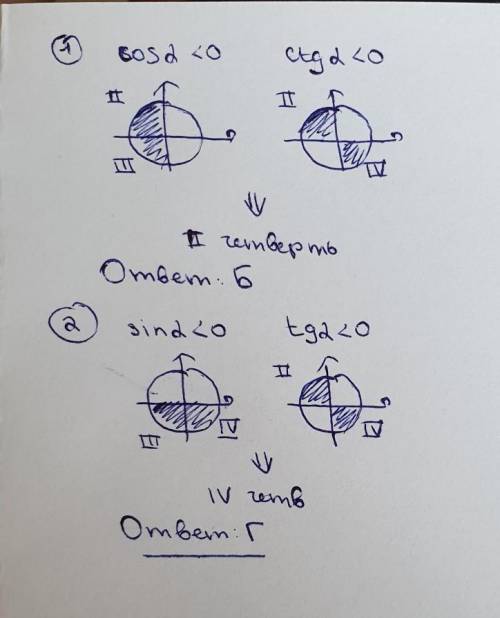 1 cosα <0 ctgα <0
II II
III IV
II четверть
Ответ: Б
2 sinα <0 tgα <0
II
III IV IV
IV четв
Ответ: Г